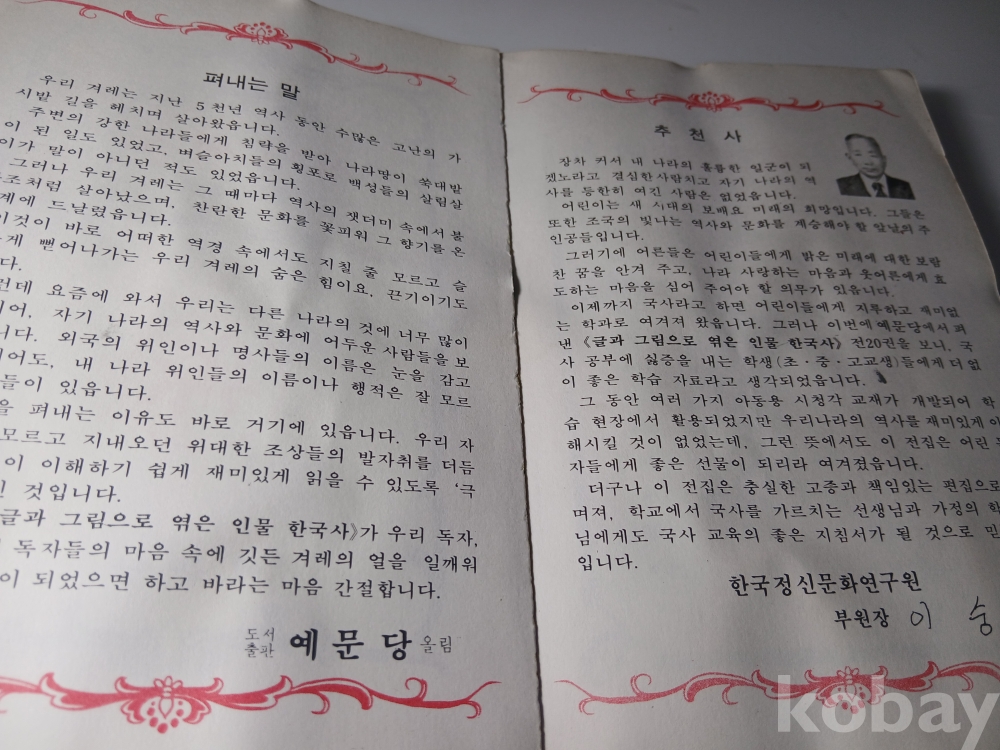 펴내는 말
우리 겨레는 지난 5천년 역사 동안 수많은 고난의 가
시밭 길을 헤치며 살아왔읍니다.
주변의 강한 나라들에게 침략을 받아 나라땅이 쑥대밭
이 된 일도 있었고, 벼슬아치들의 횡포로 백성들의 살림살
이가 말이 아니던 적도 있었읍니다.
그러나 우리 겨레는 그 때마다 역사의 잿더미 속에서 불
조처럼 살아났으며, 찬란한 문화를 꽃피워 그 향기를 온
계에 드날렸읍니다.
이것이 바로 어떠한 역경 속에서도 지칠 줄 모르고 슬
게 뻗어나가는 우리 겨레의 숨은 힘이요, 끈기이기도
다.
런데 요즘에 와서 우리는 다른 나라의 것에 너무 많이
어, 자기 나라의 역사와 문화에 어두운 사람들을 보
니다. 외국의 위인이나 명사들의 이름은 눈을 감고
어도, 내 나라 위인들의 이름이나 행적은 잘 모르
들이 있읍니다.
을 펴내는 이유도 바로 거기에 있읍니다. 우리 자
모르고 지내오던 위대한 조상들의 발자취를 더듬
이 이해하기 쉽게 재미있게 읽을 수 있도록 '극
것입니다.
글과 그림으로 엮은 인물 한국사》가 우리 독자,
독자들의 마음 속에 깃든 겨레의 얼을 일깨워
이 되었으면 하고 바라는 마음 간절합니다.
도서출판 예문당 올림
추천사
장차 커서 내 나라의 훌륭한 일군이 되
겠노라고 결심한사람치고 자기 나라의 역
사를 등한히 여긴 사람은 없었읍니다.
어린이는 새 시대의 보배요 미래의 희망입니다. 그들은
또한 조국의 빛나는 역사와 문화를 계승해야 할 앞날의 주
인공들입니다.
그러기에 어른들은 어린이들에게 밝은 미래에 대한 보람
찬 꿈을 안겨 주고, 나라 사랑하는 마음과 웃어른에게 효
도하는 마음을 심어 주어야 할 의무가 있읍니다.
이제까지 국사라고 하면 어린이들에게 지루하고 재미없
는 학과로 여겨져 왔읍니다. 그러나 이번에 예문당에서 펴
낸 《글과 그림으로 엮은 인물 한국사》 전20권을 보니, 국
사 공부에 싫증을 내는 학생(초·중·고교생)들에게 더 없
이 좋은 학습 자료라고 생각되었읍니다.
그 동안 여러 가지 아동용 시청각 교재가 개발되어 학
습 현장에서 활용되었지만 우리나라의 역사를 재미있게 이
해시킬 것이 없었는데, 그런 뜻에서도 이 전집은 어린
자들에게 좋은 선물이 되리라 여겨졌읍니다.
더구나 이 전집은 충실한 고증과 책임있는 편집으로
며져, 학교에서 국사를 가르치는 선생님과 가정의 학
님에게도 국사 교육의 좋은 지침서가 될 것으로 믿
입니다.
한국정신문화연구원
부원장 이 숭
kobay